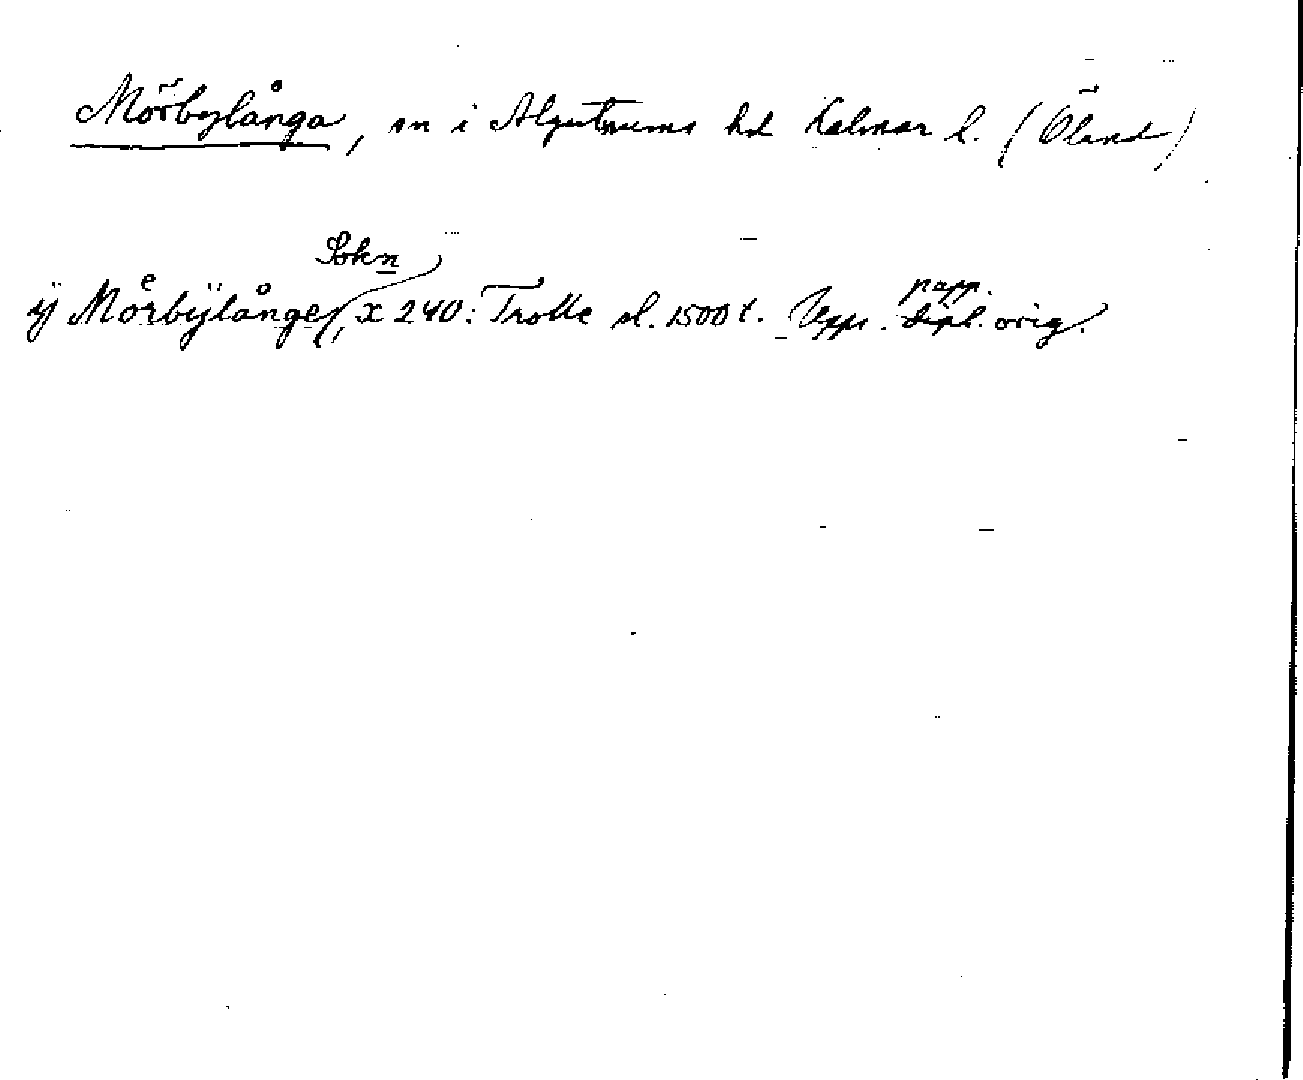 Mörbylånga, sn i Algutrums hd Kalmar l. (Öland)
Sokn
ÿ Moͤrbÿlånge, x 240: Trolle sl. 1500 t. Upps. papp. orig.